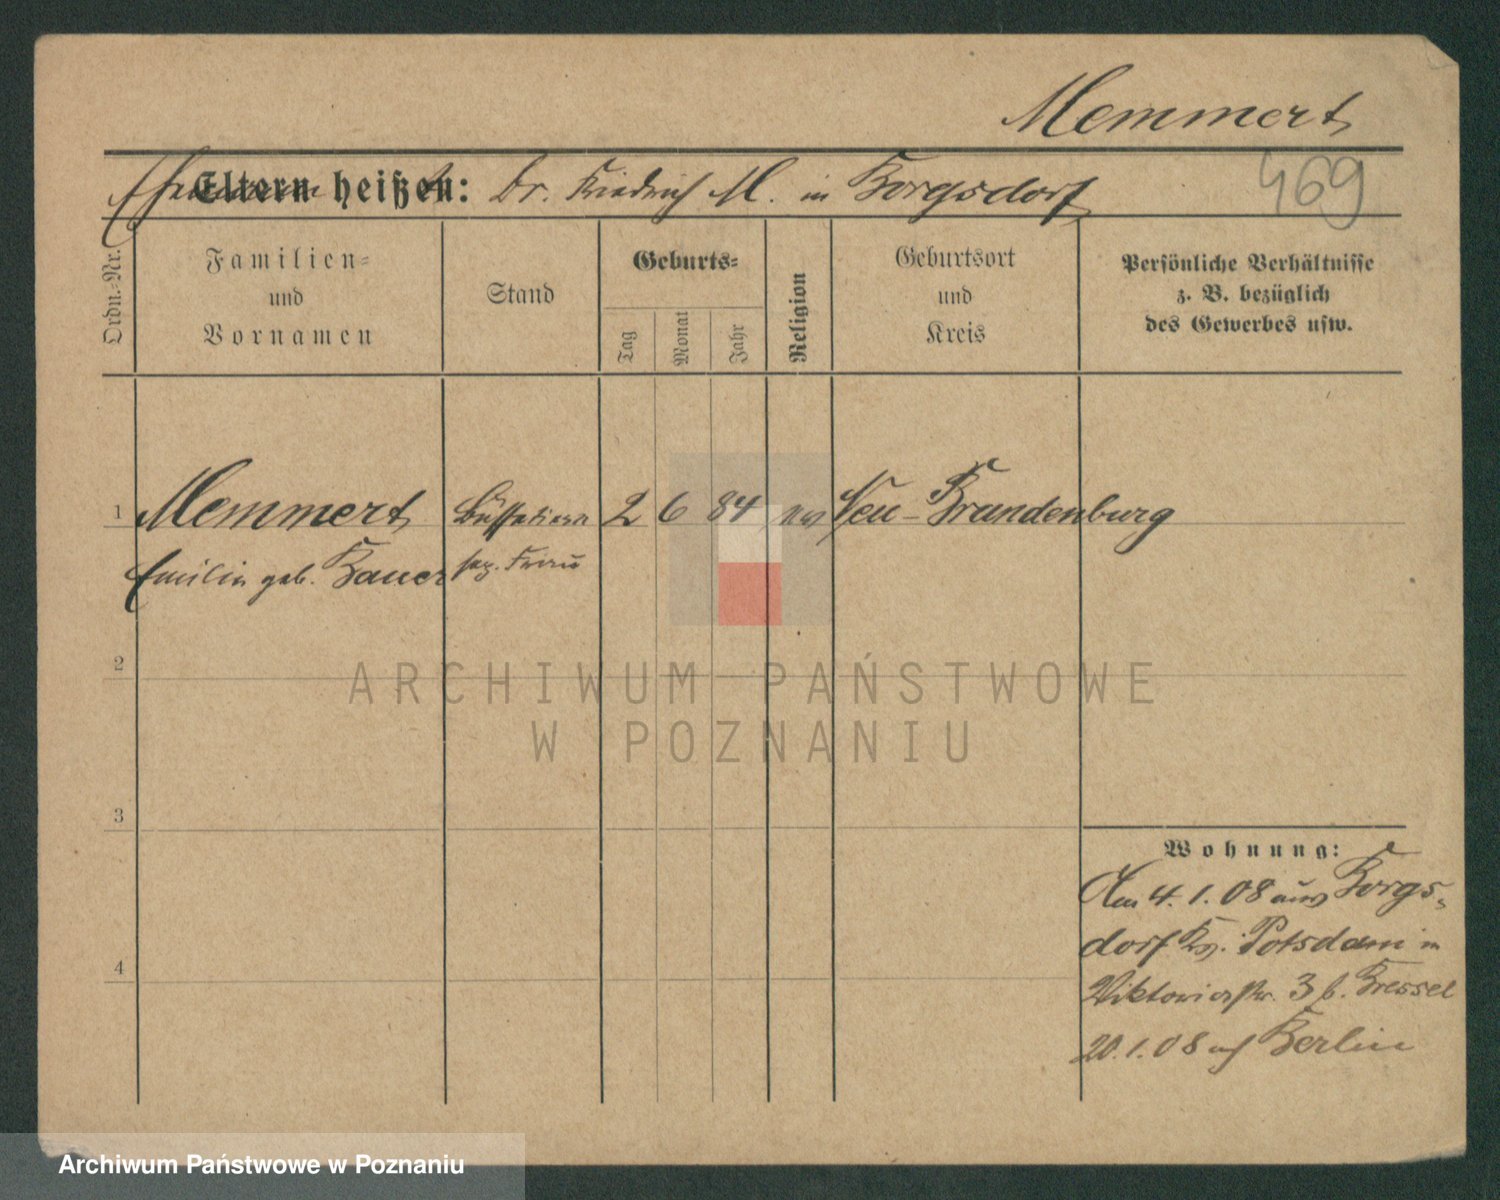 Memmert
Eltern heißen: Dr. Friedrich M. in Borgsdorf
469
Ordn.-Nr.
Familien-
und
Vornamen
Stand
Geburts-
Tag
Monat
Jahr
Religion
Geburtsort
und
Kreis
Persönliche Verhältnisse
z. B. bezüglich
des Gewerbes usw.
1 Memmert 2 6 84 Neu-Brandenburg
Emilie geb. Bauer
2
3
4
Wohnung:
Am 4.1.08 aus Borgs-
dorf Krs. Potsdam in
Viktoriastr. 3 b. Bressel
20.1.08 auf Berlin
ARCHIWUM PAŃSTWOWE
W POZNANIU
Archiwum Państwowe w Poznaniu